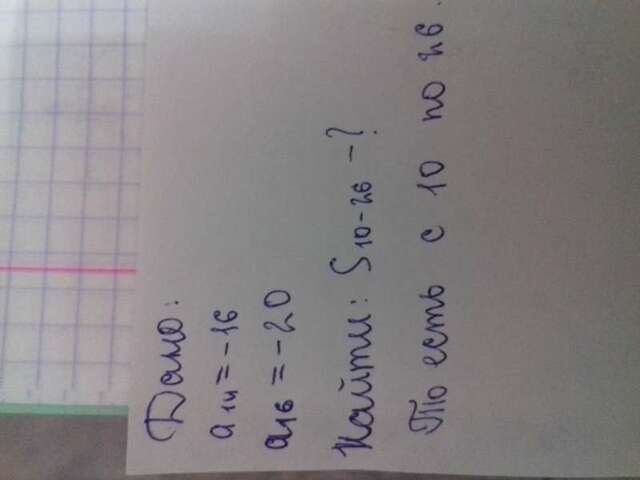 Дано:
a₁₄ = -16
a₁₆ = -20
Найти: S₁₀₋₂₆ - ?
То есть с 10 по 26.